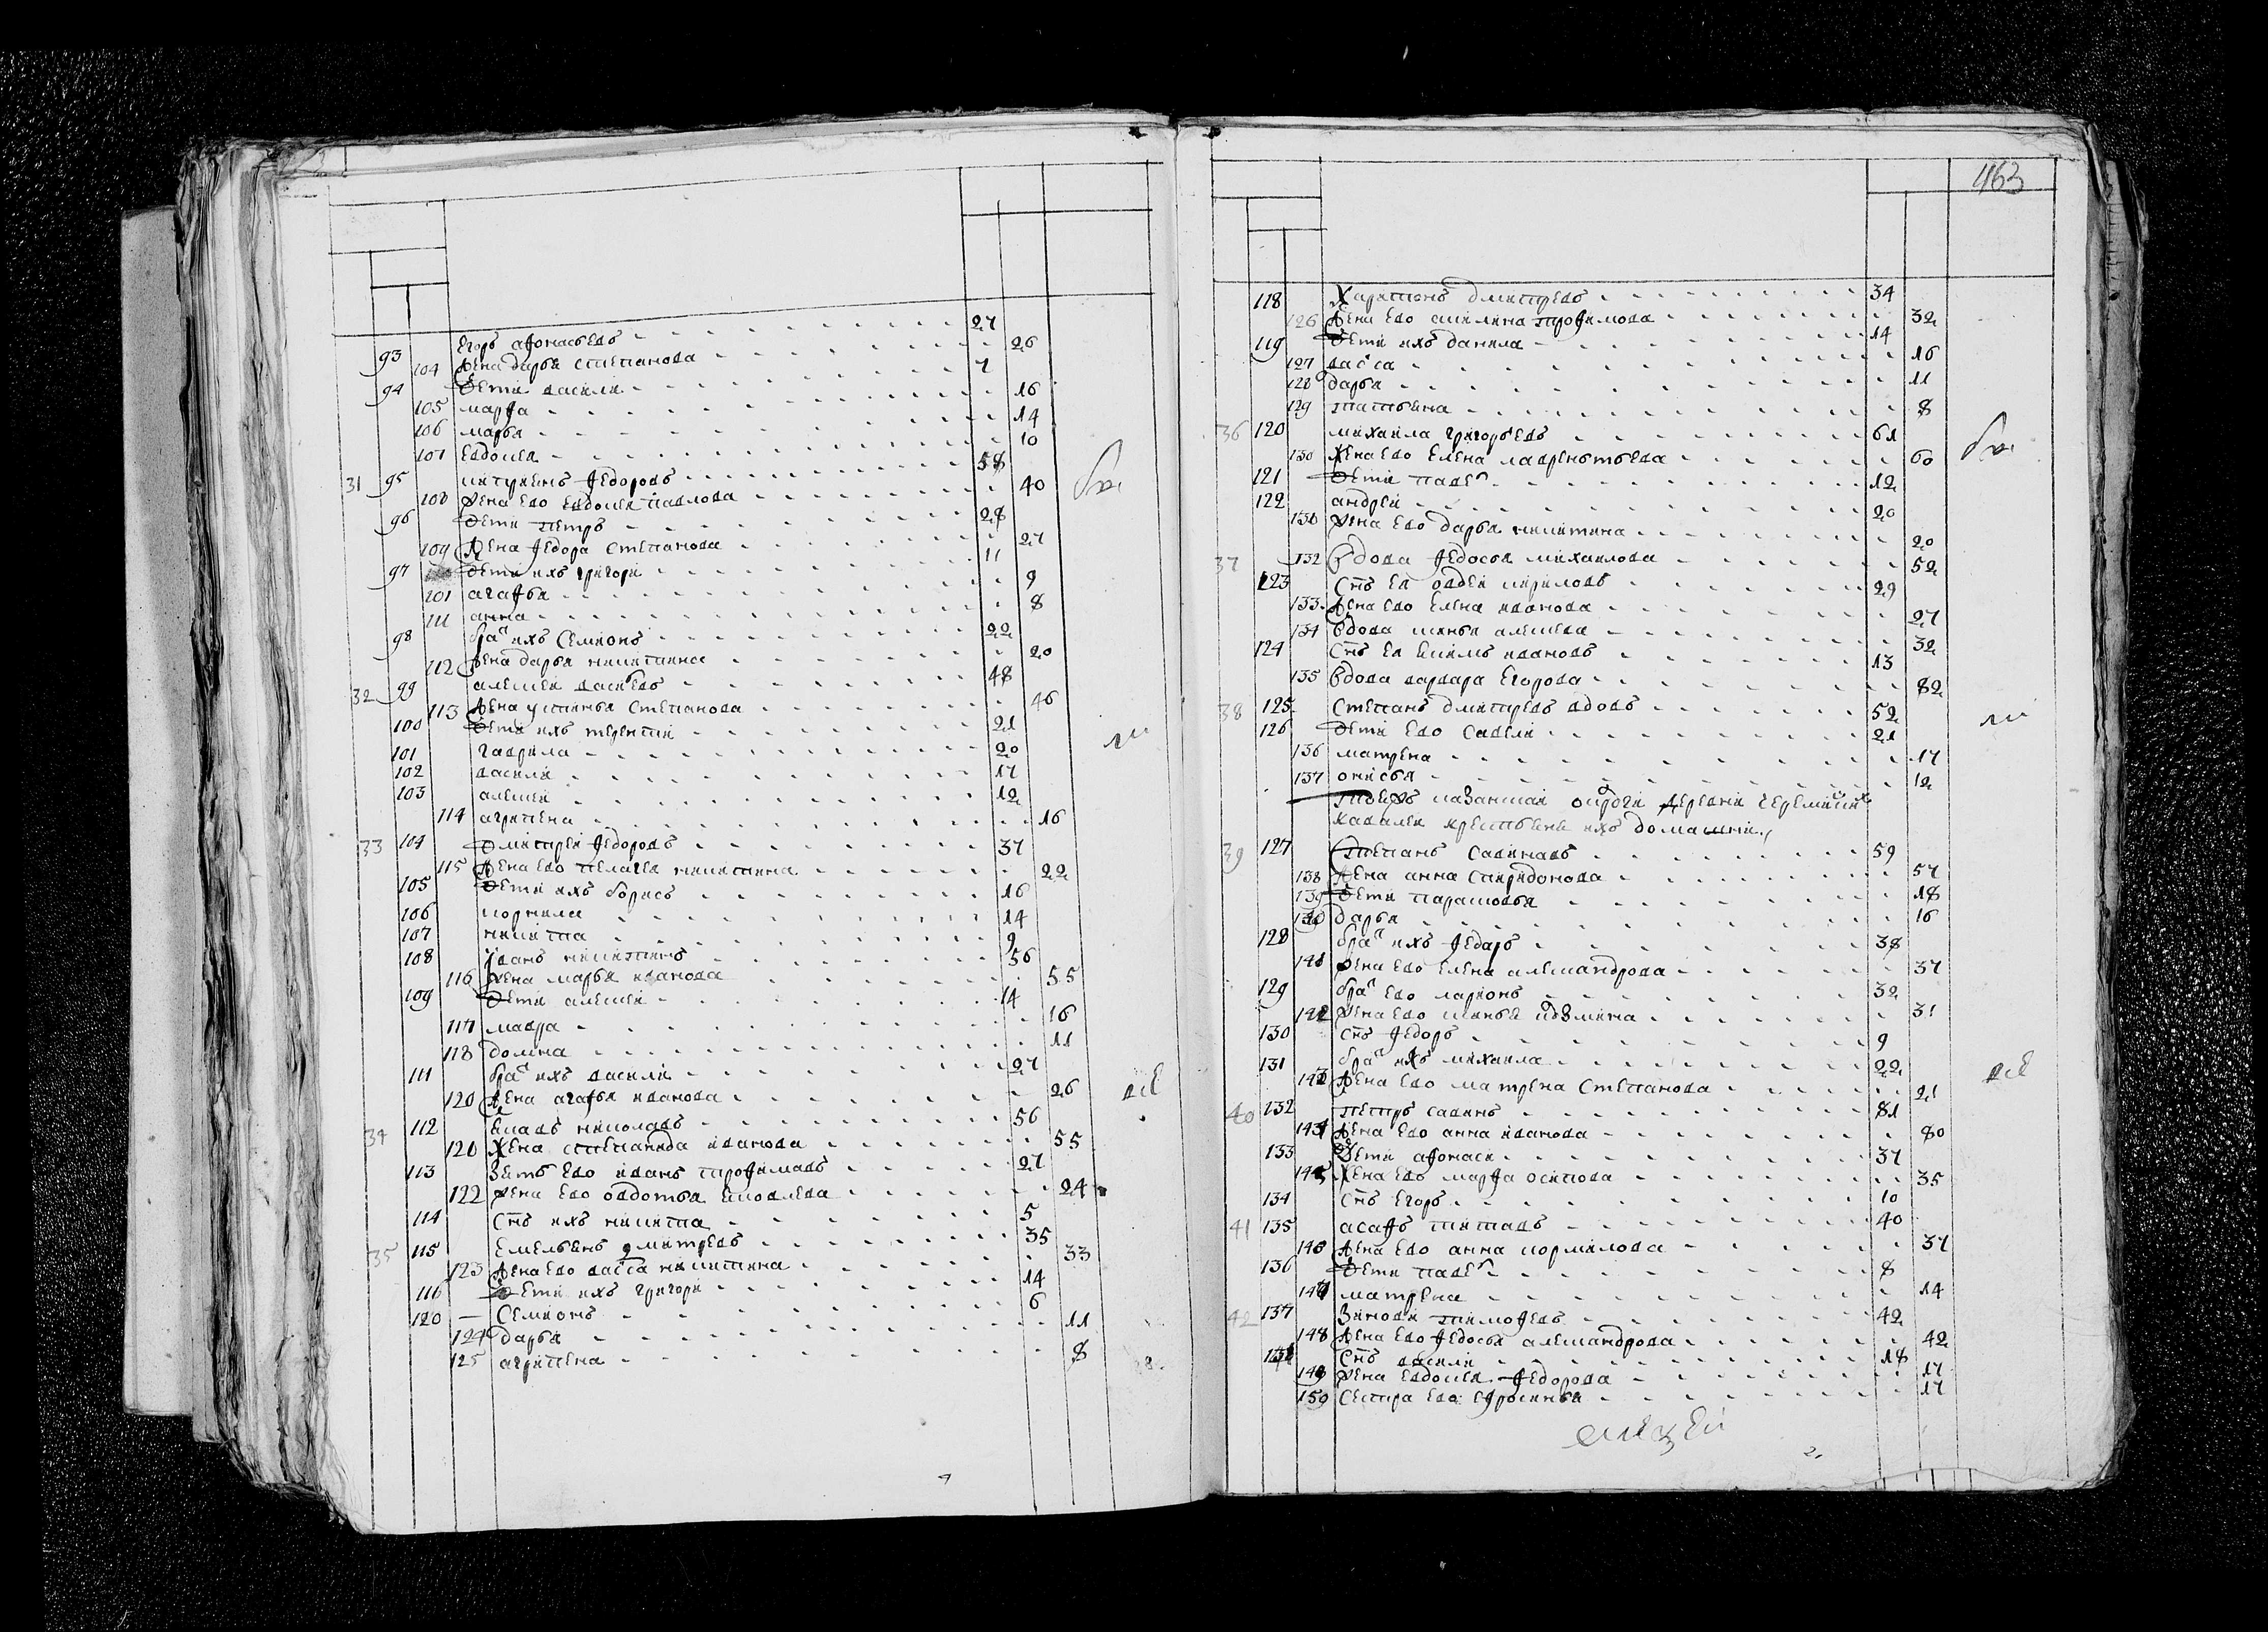 93 Егоръ афонасьевъ 27
104 Жена дарья степанова 26
94 Дети василеи 7
105 марфа 16
106 марья 14
107 евдокея 10
31 95 Федоровъ 58
108 Жена ево евдокея павлова 40
96 Дети петръ 28
109 Жена федора степанова 27
97 Дети ихъ григореи 11
101 агафья 9
111 анна 8
98 бра ихъ семионъ 22
112 Жена дарья никитина 20
32 99 алексеи васиевъ 48
113 Жена устинья степанова 46
100 Дети ихъ терентеи 21
101 гаврила 20
102 василеи 17
103 алексеи 12
114 агрипена 16
33 104 Дмитреи федоровъ 37
115 Жена ево пелагея никитина 22
105 Дети ихъ борисъ 16
106 корнила 14
107 никита 9
108 иванъ никитинъ 56
116 Жена марья иванова 55
109 Дети алексеи 14
117 мавра 16
118 домна 11
111 бра ихъ василеи 27
120 Жена агафья иванова 26
34 112 николавъ 56
120 Жена степанида иванова 55
113 Зять ево иванъ трофимавъ 27
122 Жена ево овдотья яковлева 24
114 Снъ ихъ никита 5
35 115 Емельянъ дмитревъ 35
123 Жена ево васса никитина 33
116 Дети ихъ григореи 14
120 — Семионъ 6
124 дарья 11
125 агрипена 8
463
118 Харитонъ дмитревъ 34
126 Жена ево акилина трофимова 32
119 Дети ихъ данила 14
127 васса 16
128 дарья 11
129 татьяна 8
36 120 михаила григорьевъ 61
130 Жена ево елена лаврентьева 60
121 Дети павел 12
122 андреи 20
130 Жена ево дарья никитина 20
37 132 Вдова федосья михаилова 52
123 Снъ ея овдеи кириловъ 29
133 Жена ево елена иванова 27
134 Вдова алексеева 32
124 Снъ ея екимъ ивановъ 13
135 Вдова варвара егорова 82
38 125 Степанъ дмитревъ вдовъ 52
126 Дети ево савелеи 21
136 матрена 17
137 онисья 12
крестьяне ихъ домашни
39 127 Степанъ савинавъ 59
138 Жена анна спиридонова 57
139 Дети парасковья 18
130 дарья 16
128 бра ихъ федаръ 38
141 Жена ево елена александрова 37
129 бра ево ларионъ 32
142 Жена ево аксинья кузмина 31
130 Снъ федоръ 9
131 бра ихъ михаила 22
143 Жена ево матрена степанова 21
40 132 петръ савинъ 81
144 Жена ево анна иванова 80
133 Дети афонасеи 37
145 Жена ево марфа осипова 35
134 Снъ егоръ 10
41 135 асафъ титавъ 40
146 Жена ево анна кормилова 37
136 Дети павел 8
147 матрена 14
42 137 Зиновеи тимофевъ 42
148 Жена ево федосья александрова 42
138 Снъ василеи 18
149 Жена евдокея федорова 17
150 Сестра ево ефросинья 17